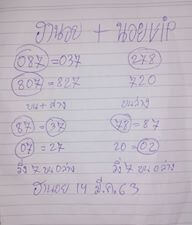 ฮานอย + นอยVIP
087 = 037 278
807 = 827 720
บน + ล่าง บนล่าง
87 = 37 78 = 87
07 = 27 20 = 02
วิ่ง 7 บน 0 ล่าง วิ่ง 7 บน 0 ล่าง
ฮานอย 14 มี.ค. 63